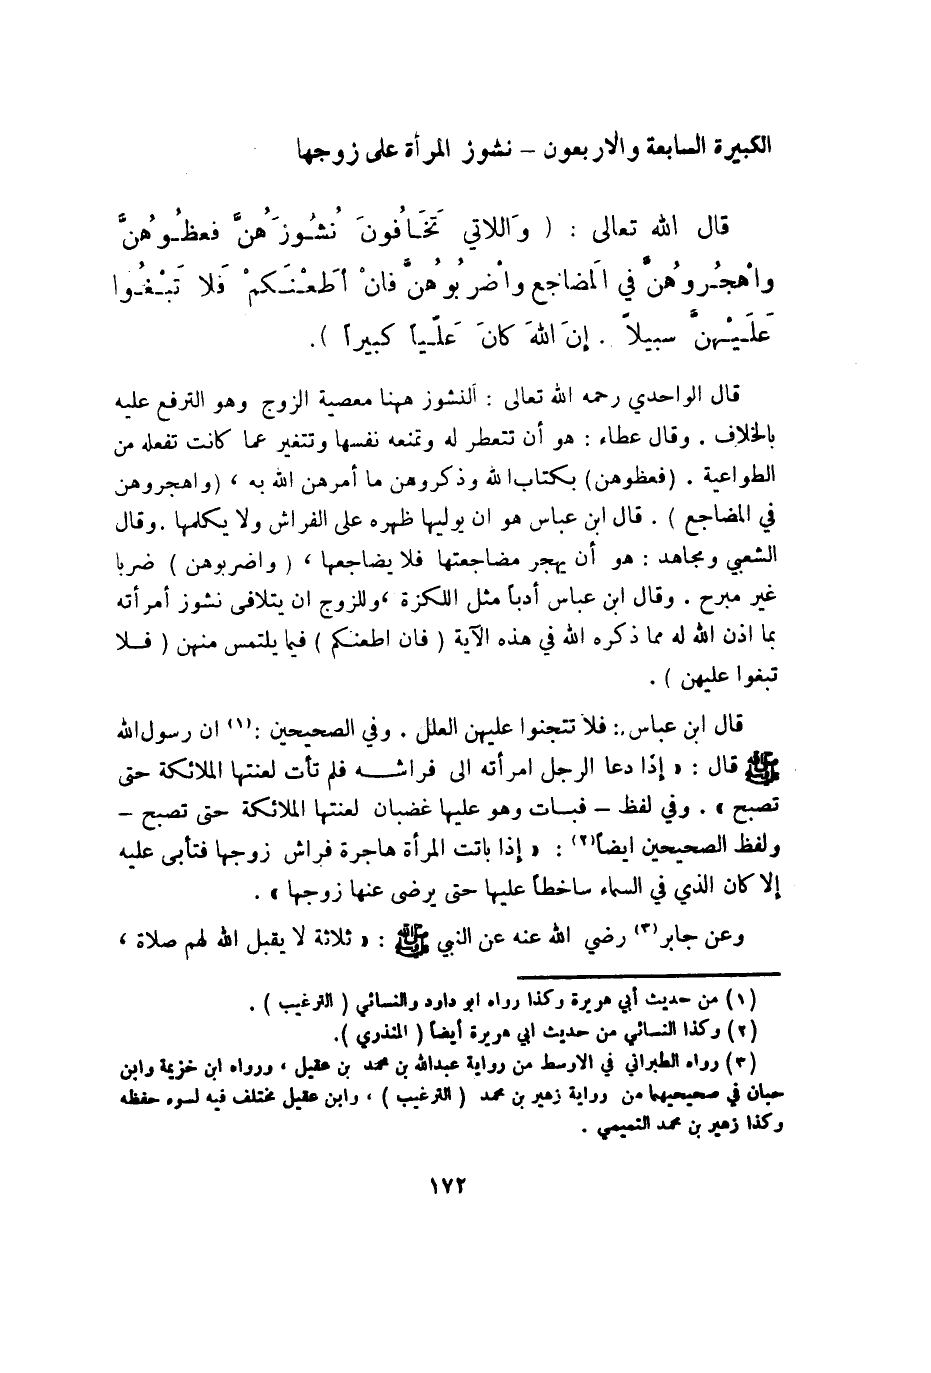 الكبيرة السابعة والاربعون – نشوز المرأة على زوجها
قال الله تعالى : ( وَاللاتي تَخَافُونَ نُشُوزَهُنَّ فَعِظُوهُنَّ
واهْجُروهُنَّ في المَضاجع واضْربُوهُنَّ فانْ أطَعْنَكمْ فَلا تَبْغُوا
عَلَيْهنَّ سبيلاً . إنَ اللهَ كانَ عَلّياً كبيراً ) .
قال الواحدي رحمه الله تعالى : النشوز ههنا معصية الزوج وهو الترفع عليه
بالخلاف . وقال عطاء : هو أن تتعطر له وتمنعه نفسها وتتغير عما كانت تفعله من
الطواعية . (فعظوهن) بكتاب الله وذكروهن ما أمرهن الله به ، (واهجروهن
في المضاجع ) . قال ابن عباس هو ان يوليها ظهره على الفراش ولا يكلمها . وقال
الشعبي ومجاهد : هو أن يهجر مضاجعتها فلا يضاجعها ، ( واضربوهن ) ضربا
غير مبرح . وقال ابن عباس أدباً مثل اللكزة ، وللزوج ان يتلافى نشوز أمرأته
بما اذن الله له مما ذكره الله في هذه الآية ( فان اطعنكم ) فيما يلتمس منهن ( فــلا
تبغوا عليهن ) .
قال ابن عباس : فلا تتجنوا عليهن العلل . وفي الصحيحين :(١) ان رسول الله
ﷺ قال : « إذا دعا الرجل امرأته الى فراشــــه فلم تأت لعنتها الملائكة حتى
تصبح » . وفي لفظ – فبــات وهو عليها غضبان لعنتها الملائكة حتى تصبح –
ولفظ الصحيحين ايضاً(٢) : « إذا باتت المرأة هاجرة فراش زوجها فتأبى عليه
إلا كان الذي في السماء ساخطاً عليها حتى يرضى عنها زوجها » .
وعن جابر(٣) رضي الله عنه عن النبي ﷺ : « ثلاثة لا يقبل الله لهم صلاة ،
(١) من حديث أبي هريرة وكذا رواه ابو داود والنسائي ( الترغيب ) .
(٢) وكذا النسائي من حديث ابي هريرة أيضاً ( المنذري ).
(٣) رواه الطبراني في الاوسط من رواية عبدالله بن محمد بن عقيل ، ورواه ابن خزيمة وابن
حبان في صحيحيهما من رواية زهير بن محمد ( الترغيب ) ، وابن عقيل مختلف فيه لسوء حفظه
وكذا زهير بن محمد التميمي .
١٧٢